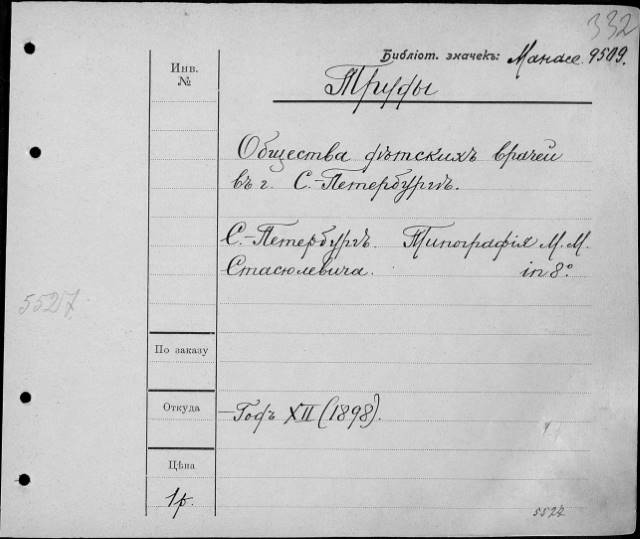 332
Библіот. значекъ: Манасс. 9509.
Инв.
№
Труды
Общества дѣтскихъ врачей
въ г. С.-Петербургѣ.
С.-Петербургъ. Типографія М. М.
Стасюлевича. in 8º.
5527
По заказу
Откуда
Годъ XII (1898).
Цѣна
1р.
5527